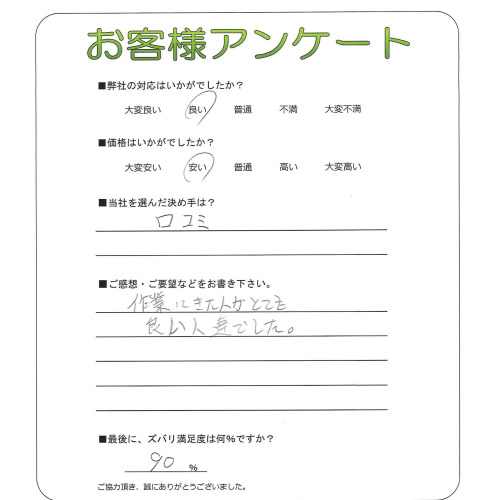 お客様アンケート
■弊社の対応はいかがでしたか?
大変良い 良い 普通 不満 大変不満
■価格はいかがでしたか?
大変安い 安い 普通 高い 大変高い
■当社を選んだ決め手は?
口コミ
■ご感想・ご要望などをお書き下さい。
作業にきた人がとても
良い人達でした。
■最後に、ズバリ満足度は何%ですか?
90 %
ご協力頂き、誠にありがとうございました。